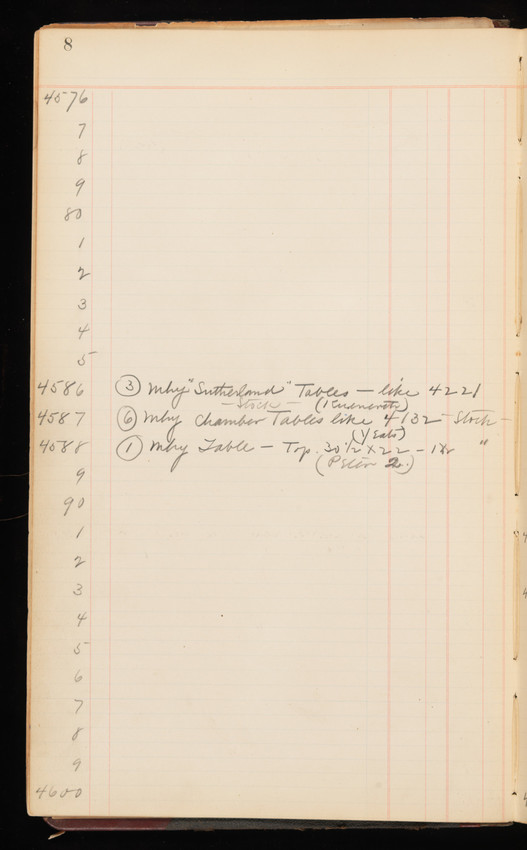 8
4576
7
8
9
80
1
2
3
4
5
4586 (3) Mhy "Sutherland" Tables — like 4221
— Stock —
4587 (6) Mhy Chamber Tables like 4132 — Stock —
(Yeats)
4588 (1) Mhy Table — Top. 30½ x 22 — 1 Dr "
9
90
1
2
3
4
5
6
7
8
9
4600